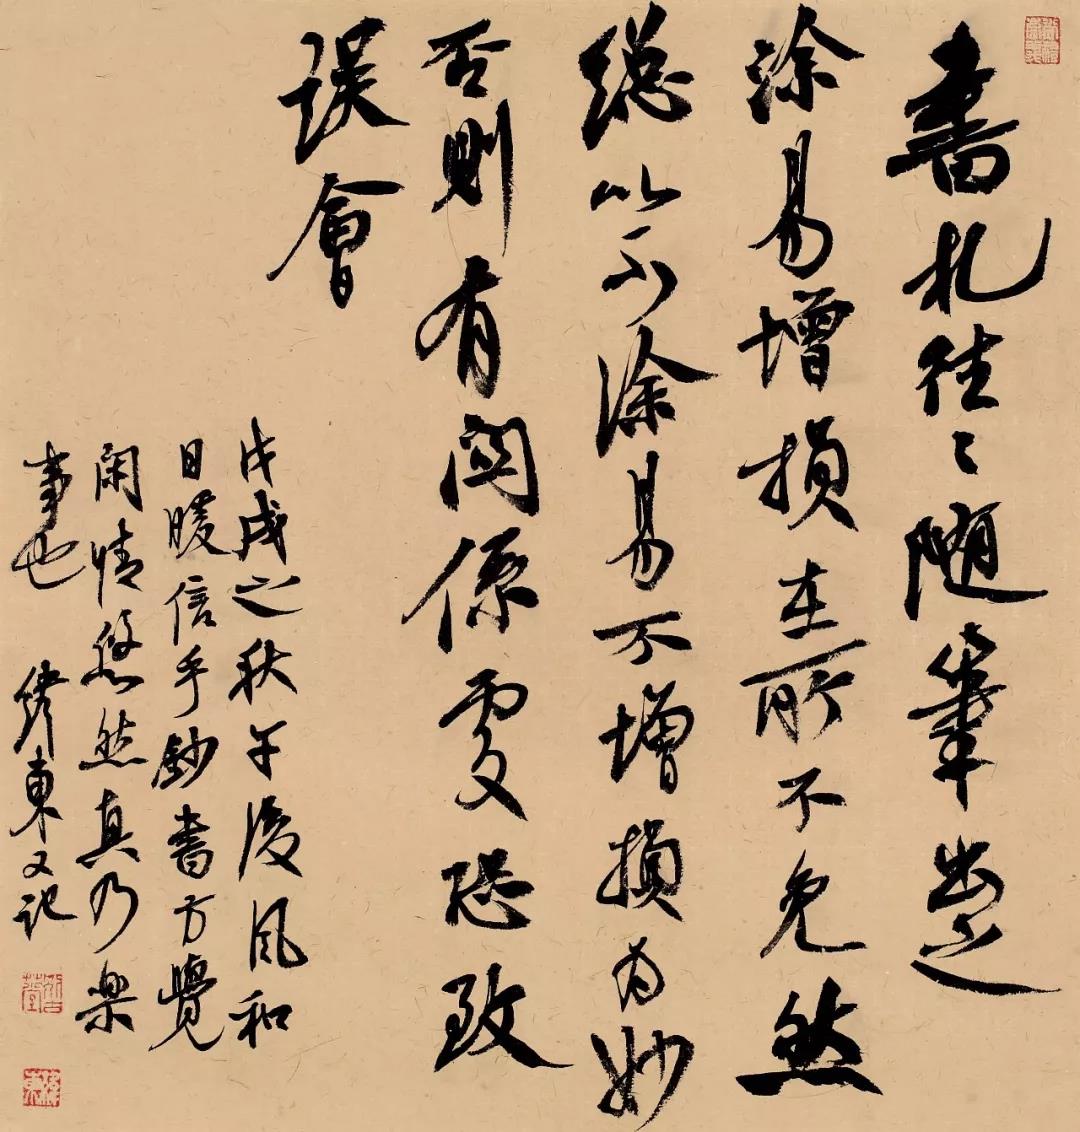 書札往々随筆出之
涂易增損在所不免然
總以不涂易不增損為妙
否則有関係處恐致
誤會
戊戌之秋午後風和
日暖信手鈔書方覺
閑情悠然真乃樂
事也 緯東又記